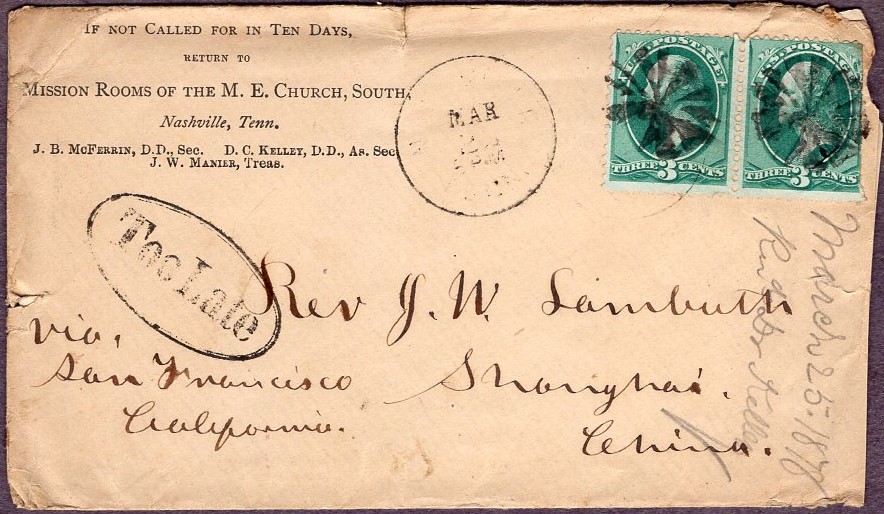 IF NOT CALLED FOR IN TEN DAYS,
RETURN TO
MISSION ROOMS OF THE M. E. CHURCH, SOUTH,
Nashville, Tenn.
J. B. MCFERRIN, D.D., Sec. D. C. KELLEY, D.D., As. Sec
J. W. MANIER, Treas.
MAR
U.S. POSTAGE
THREE 3 CENTS
U.S. POSTAGE
THREE 3 CENTS
Too Late
Rev J. W. Lambuth
via,
San Francisco
California.
Shanghai.
China.
March 25-1876
Kelley